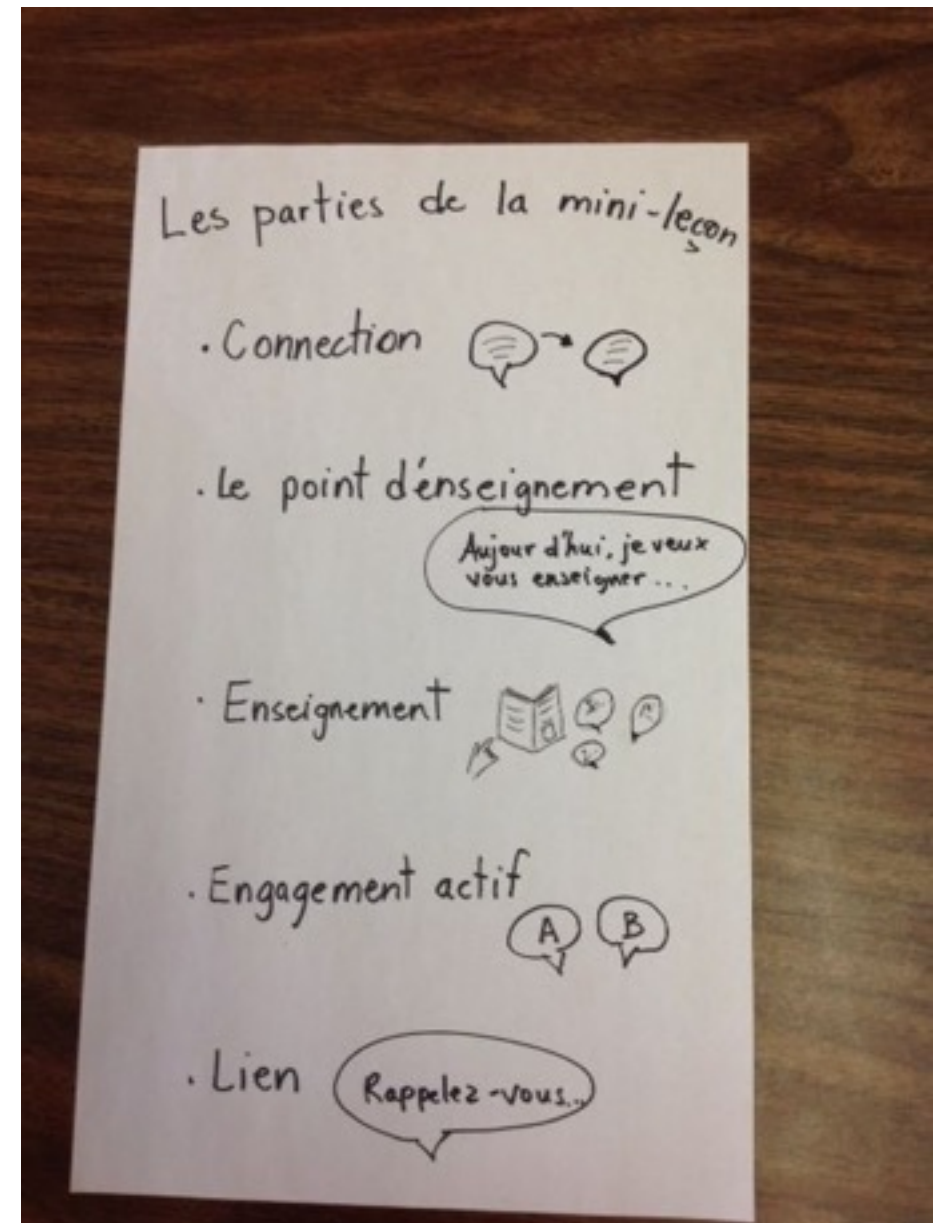 Les parties de la mini-leçon
· Connection
· Le point d'énseignement
Aujourd'hui, je veux
vous enseigner...
· Enseignement
· Engagement actif
A B
· Lien
Rappelez-vous...